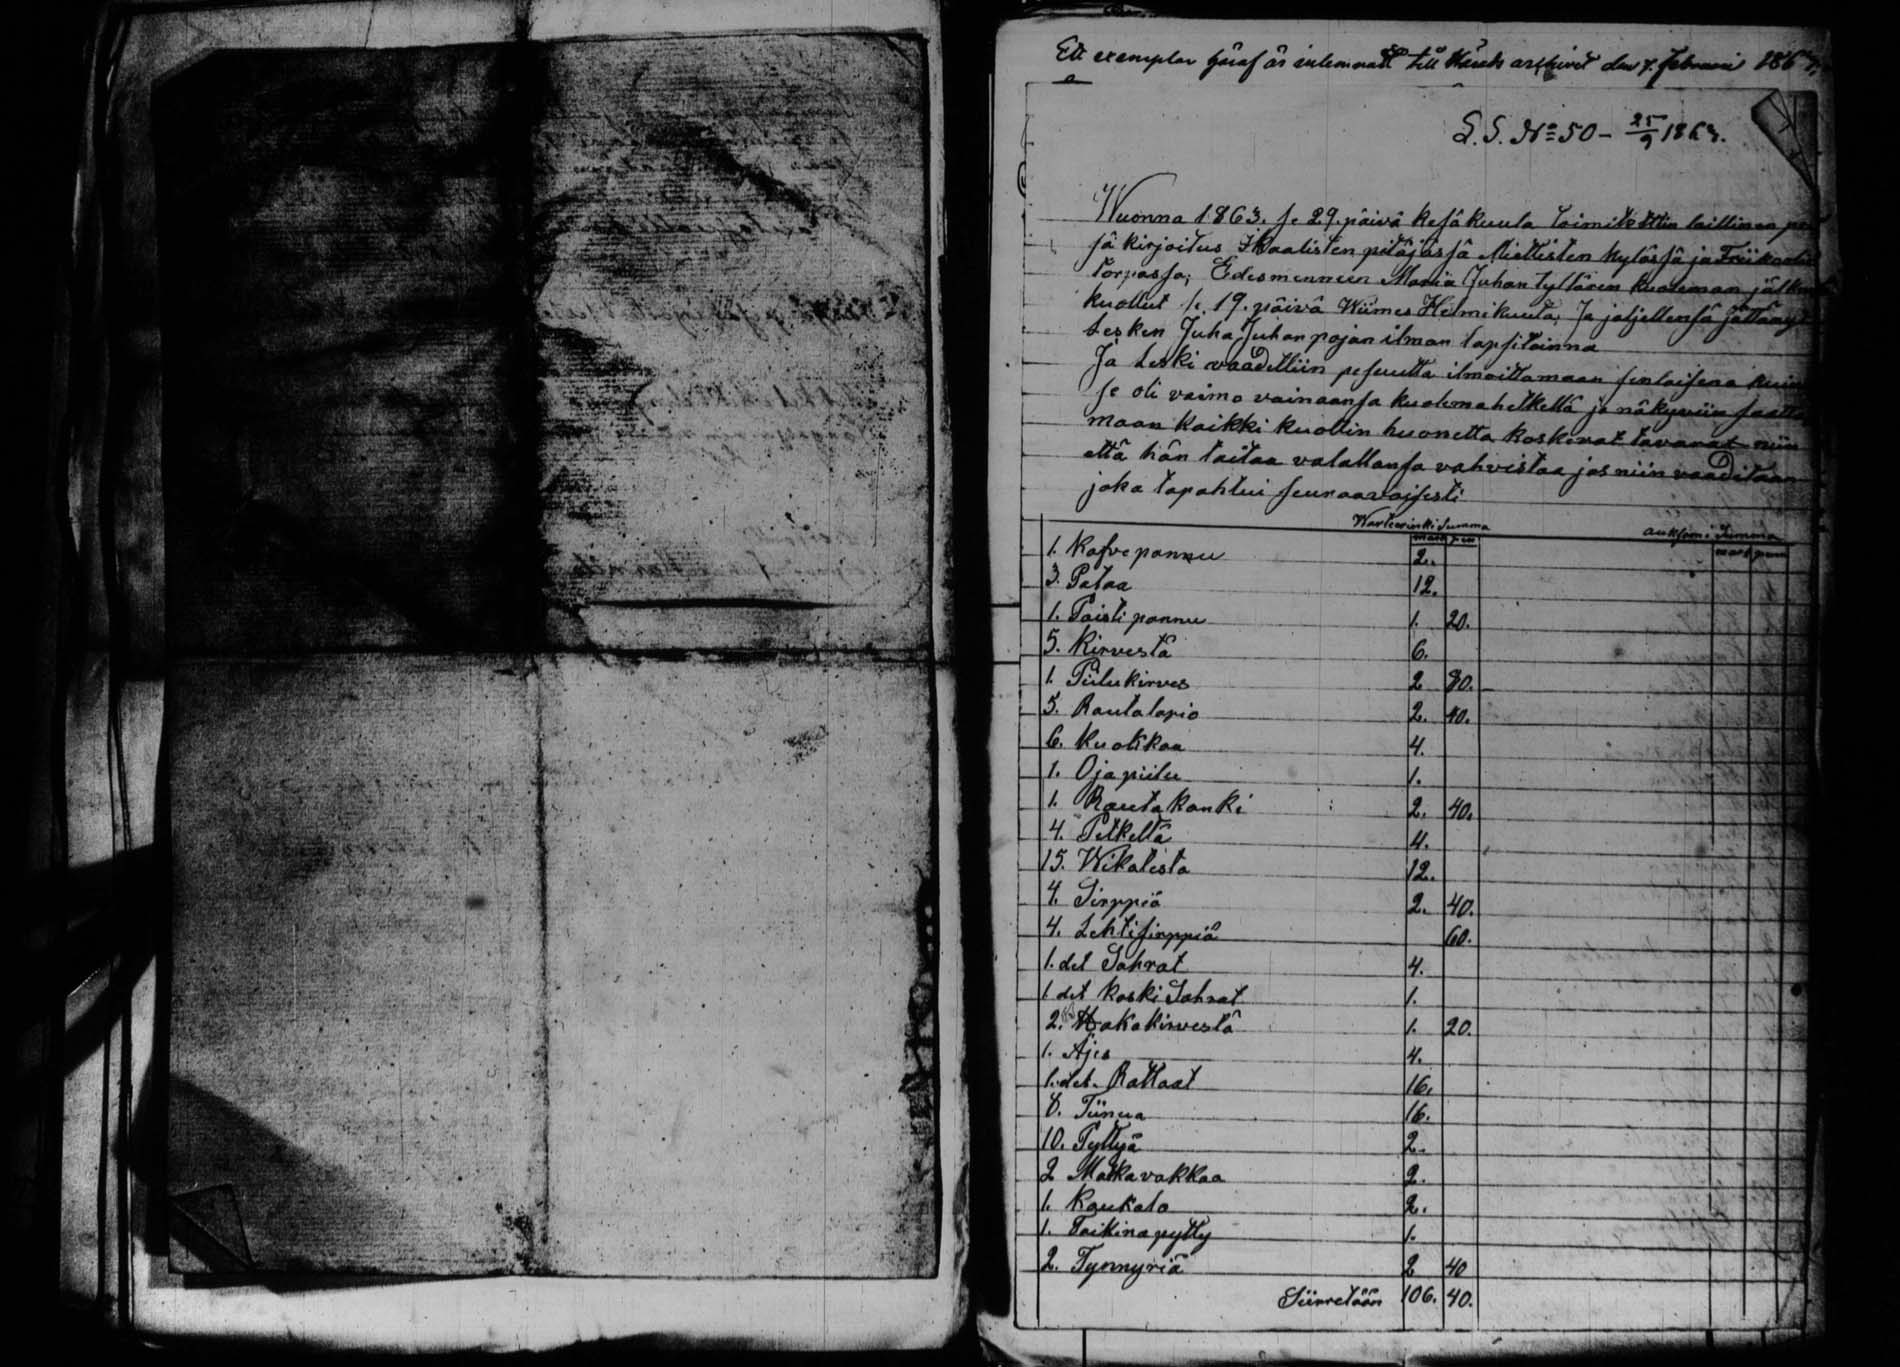 Ett exemplar häraf är inlemnadt till Härads arkivet den 7. februari 1867.
L. S. No 50 – 25/9 1863.
Wuonna 1863. se 29. päivä kesäkuula toimitettiin laillinen pe
sä kirjoitus Ikaalisten pitäjässä Miettisten kylässä ja
torpassa; Edesmenneen Maria Juhan tyttären kuoleman jälkeen
kuollut se 19. päivä Wiimes Helmikuuta; Ja jäljellensä jättänyt
Lesken Juha Juhan pojan ilman lapsitoinna
Ja Leski vaadettiin pesuutta ilmoittamaan senlaisena kuin
se oli vaimo vainaansa kuolemahetkellä ja näkyviin saatta
maan kaikki kuollin huonetta koskevat tavarat niin
että hän taitaa valallansa vahvistaa jos niin vaaditaan
joka tapahtui seuraavaisesti
Warteerinki Summa auksjoni Summa
mark pen mark penn
1. Kafvepannu 2.
3. Pataa 12.
1. Paisti pannu 1. 20.
5. Kirvestä 6.
1. Piilukirves 2 80.
5. Rautalapio 2. 40.
6. Kuokkaa 4.
1. Ojapiilu 1.
1. Rautakanki 2. 40.
4. Petkeltä 4.
15. Wikatista 12.
4. Sirppiä 2. 40.
4. Lehtisirppiä 60.
1. det Sahrat 4.
1 det Koski Sahrat 1.
2. Hakokirvestä 1. 20.
1. Äjes 4.
1. det. Rattaat 16.
8. Tiinua 16.
10. Pyttyä 2.
2 Matkavakkaa 2.
1. Kaukalo 2.
1. Taikinapytty 1.
2. Tynnyriä 2 40
Siirretään 106. 40.